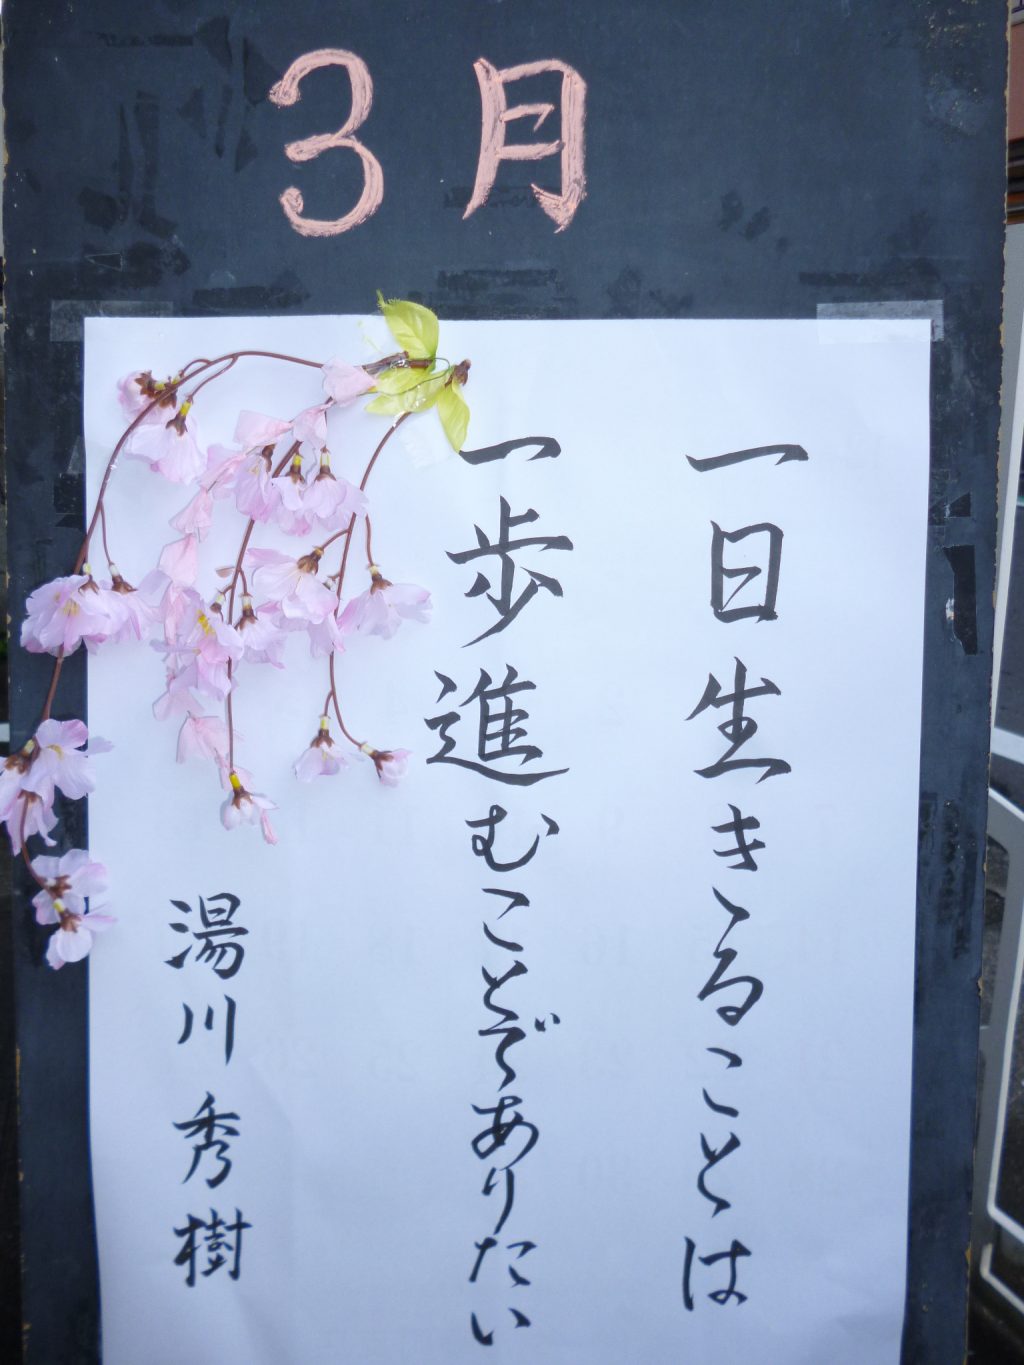 3月
一日生きることは
一歩進むことでありたい
湯川秀樹